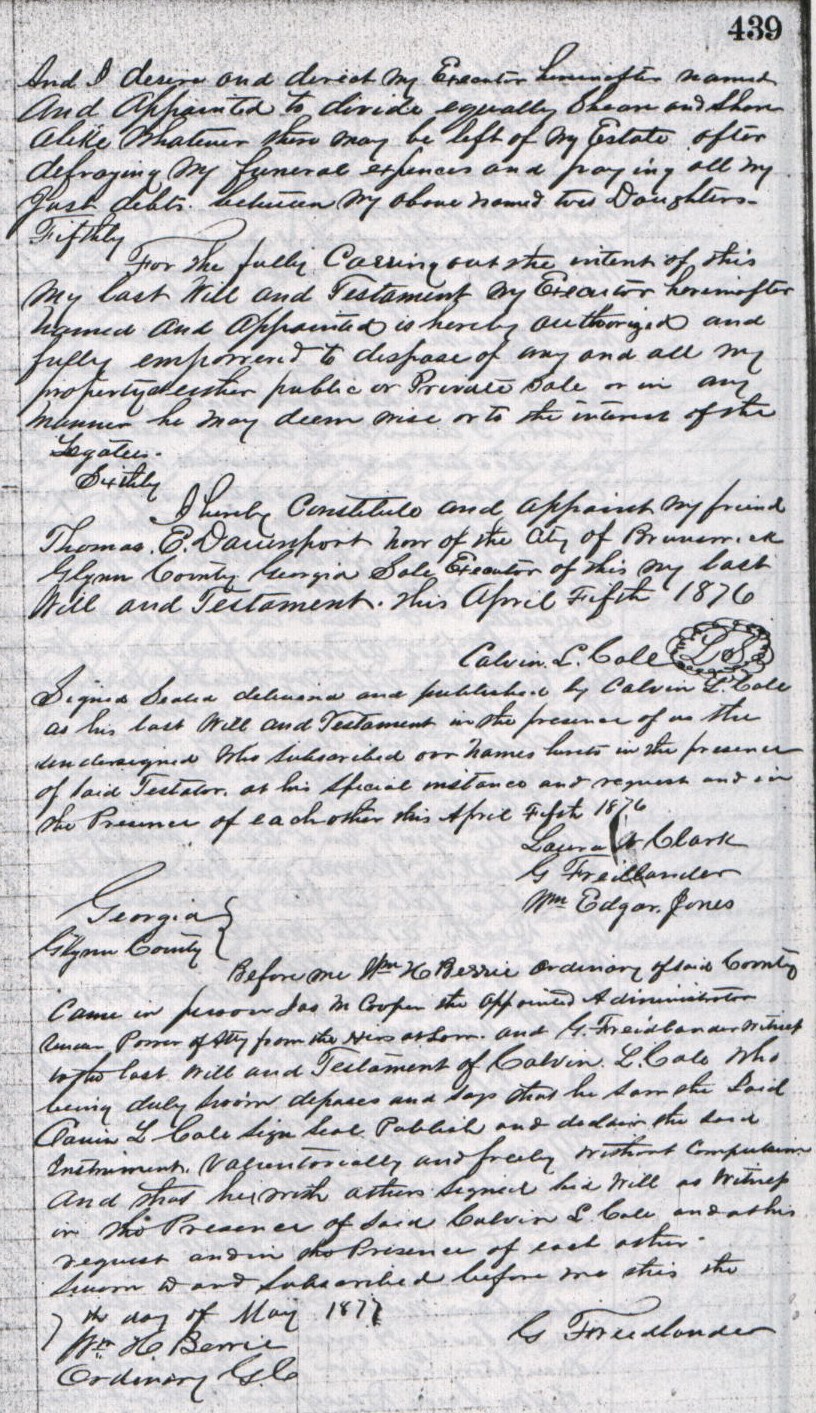 439
And I desire and direct my Executor hereinafter named
And Appointed to divide equally Sheare and Share
alike whatever there may be left of my Estate after
defraying my funeral expences and paying all my
Just debts. between my above named two Daughters-
Fifthly
For the fully Carring out the intent of this
My last Will and Testament my Executor hereinafter
named And Appointed is hereby authorized and
fully empowered to dispose of any and all my
property at either public or Private Sale or in any
manner he may deem wise or to the interest of the
Legatees.
Sixthly
I hereby Constitute and appoint my friend
Thomas. E. Davenport now of the City of Brunswick
Glynn County Georgia Sole Executor of this my last
Will and Testament. this April Fifth 1876
Calvin. L. Cole L S
Signed Sealed delivered and published by Calvin L. Cole
as his last Will and Testament in the presence of us the
undersigned who subscribed our names hereto in the presence
of said Testator. at his special instance and request and in
the Presence of each other this April Fifth 1876
Laura W Clark
G Freidlander
Wm Edgar. Jones
Georgia }
Glynn County }
Before me Wm H Berrie Ordinary of said County
Came in person Jas M Cooper the appointed Administrator
under Power of Atty from the Heirs at Law. and G. Freidlander Witness
to the last Will and Testament of Calvin. L. Cole Who
being duly sworn deposes and says that he saw the Said
Cavin L Cole Sign Seal Publish and declair the said
Instrument. and freely without Compulsion
And that he with others signed said Will as Witness
in the Presence of said Calvin L. Cole and at his
request and in the Presence of each other-
Sworn to and Subscribed before me this the
7 th day of May 1877
Wm H. Berrie
G Freedlander
Ordinary G. C